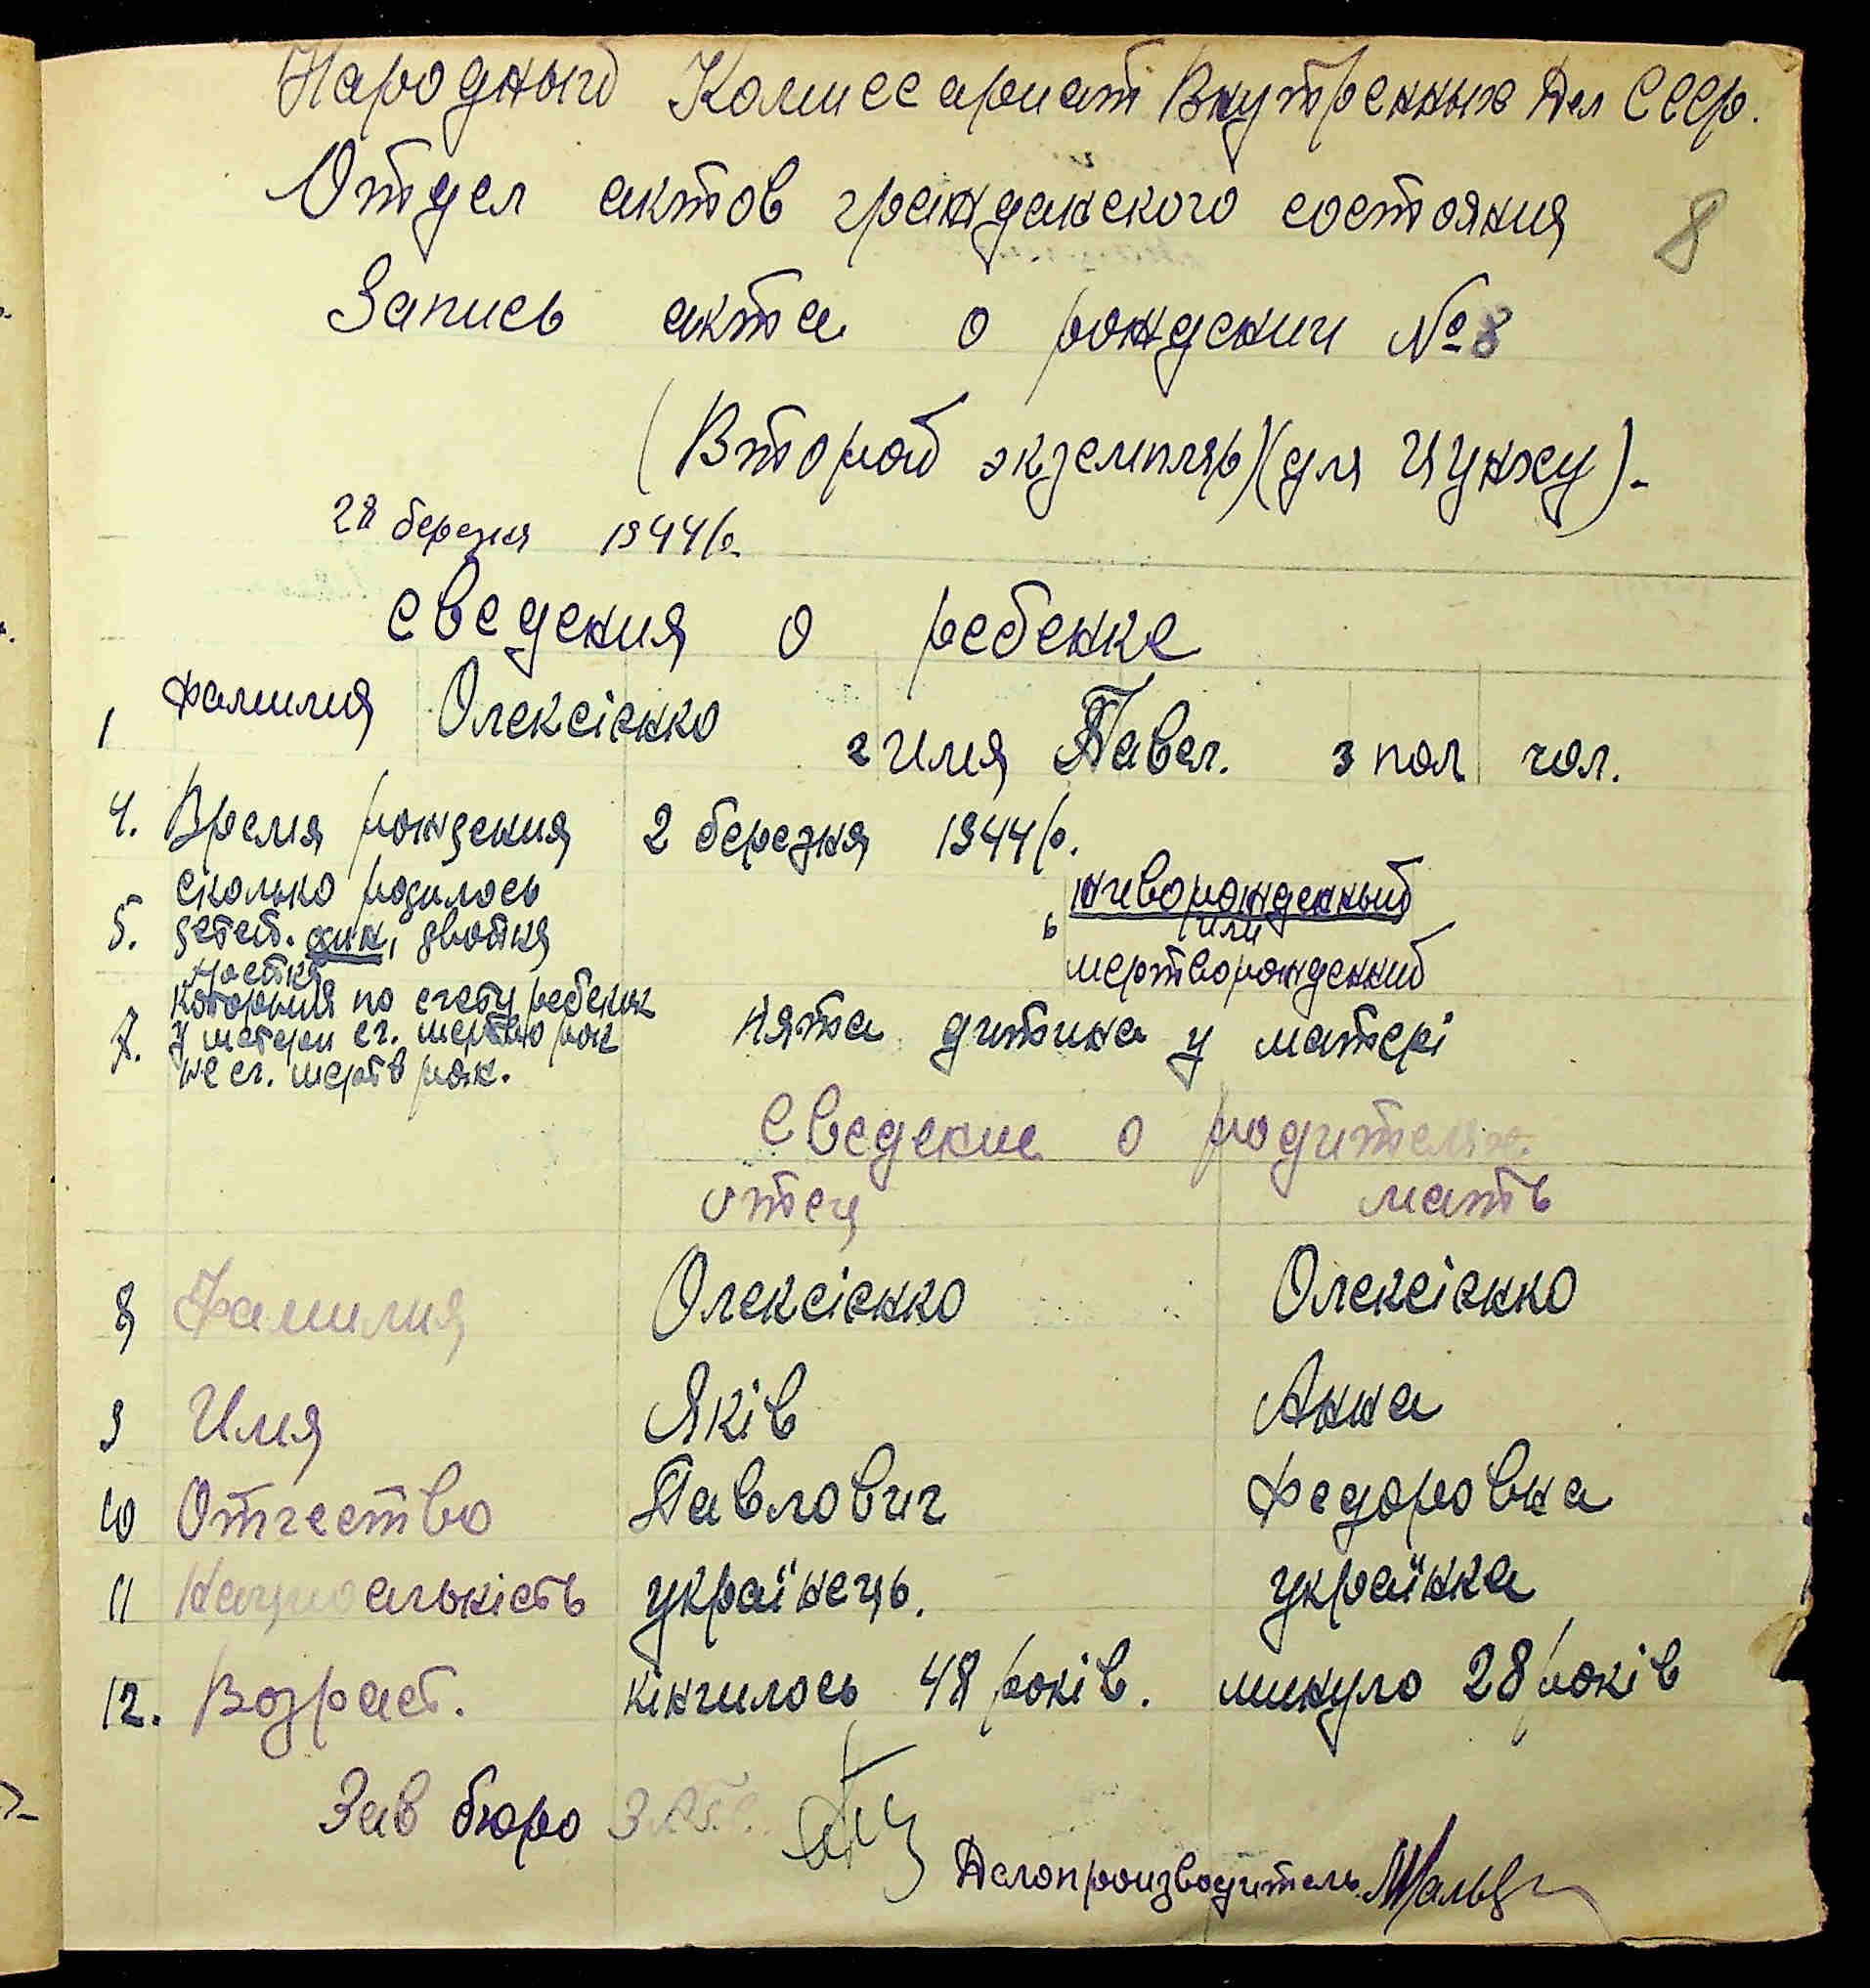 Народный Комиссариат Внутренных Дел СССР.
Отдел актов гражданского состояния
8
Запись акта о рождении № 8
(Второй экземпляр)(для ЦУНХУ).
28 березня 1944 р.
Сведения о ребенке
1 Фамилия Олексієнко 2 Имя Павел. 3 пол чол.
4. Время рождения 2 березня 1944 р.
5. сколько родилось детей. один, двойня тройня
6 живорожденный или мертворожденный
7. которыйя по счету ребенок у матери сч. мертво рож не сч. мертв рож.
п'ята дитина у матері
Сведение о родителях.
отец мать
8 Фамилия Олексієнко Олексієнко
9 Имя Яків Анна
10 Отчество Павлович Федоровна
11 Национальність українець. українка
12. Возраст. кінчилось 48 років. минуло 28 років
Зав бюро ЗАГС.
Делопроизводитель.